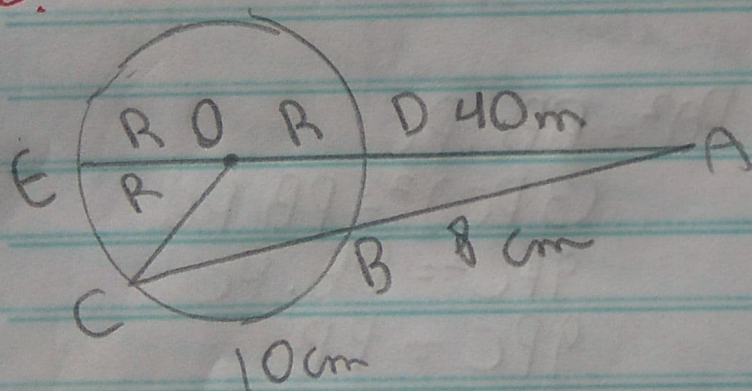 R O R D 40m
E R A
B 8 cm
C
10cm